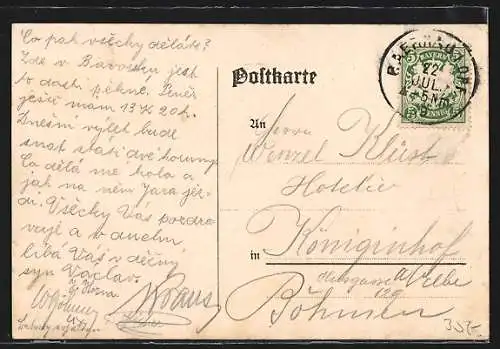 Co pak všecky děláte?
Zde v Bavorsku jest
to dosti pěkné. Dnes
ještě mám 13 K 20 h.
Dnešní výlet bude
snad státi dvě koruny.
Co dělá mé kolo a
jak na něm Jara jez-
dí. Všecky Vás pozdra-
vuje a
líbá Váš vděčný
syn Václav.
Kraus
Postkarte
An
Herrn
Wenzel Klust
Hotelier
in Königinhof
a/Elbe
129
Böhmen
BAYERN
5 PFENNIG 5
22
JUL.
5 N